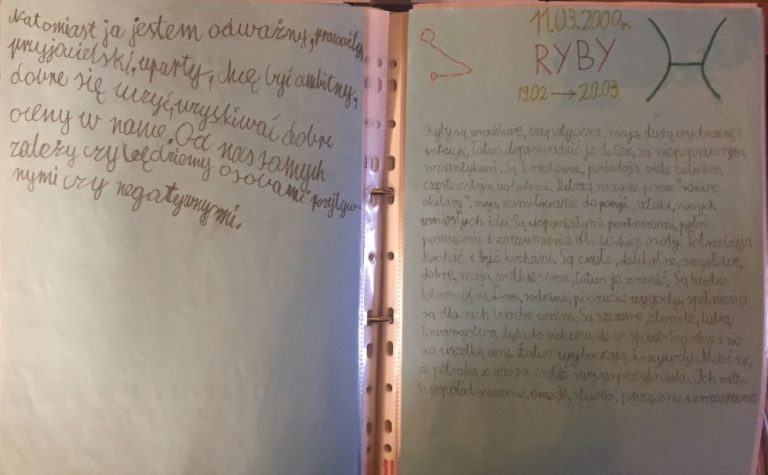 Natomiast ja jestem odważny, pracowity,
przyjacielski, uparty, chcę być ambitny,
dobrze się uczyć, uzyskiwać dobre
oceny w nauce. Od nas samych
zależy czy będziemy osobami pozytyw-
nymi czy negatywnymi.
11.03.2000r.
RYBY
19.02 → 20.03
Ryby są wrażliwe, empatyczne, mają dużą wyobraźnię i
intuicję, łatwo doprowadzić je do łez, są niepoprawnymi
romantykami. Są kreatywne, posiadają wiele talentów,
często zostają artystami. Patrzą na życie przez "różowe
okulary", mają zamiłowanie do poezji, sztuki, nowych
umysłów i idei. Są wspaniałymi partnerami, pełni
poświęcenia i zrozumienia dla bliskiej osoby. Potrzebują
kochać i być kochani. Są czułe, delikatne, zmysłowe,
dobre, mają wielkie serca, łatwo je zranić. Są bardzo
tolerancyjne. Dom, rodzina, poczucie wygody, spełnienie
są dla nich bardzo ważne. Są szczere, otwarte, lubią
towarzystwo, dążą do sukcesu ale w sposób i nie
za wszelką cenę. Łatwo wybaczają krzywdy. Mówi się,
że potrafią z wroga zrobić swojego przyjaciela. Ich
to współodczuwanie, emocje, służba, poświęcenie i zrozumienie